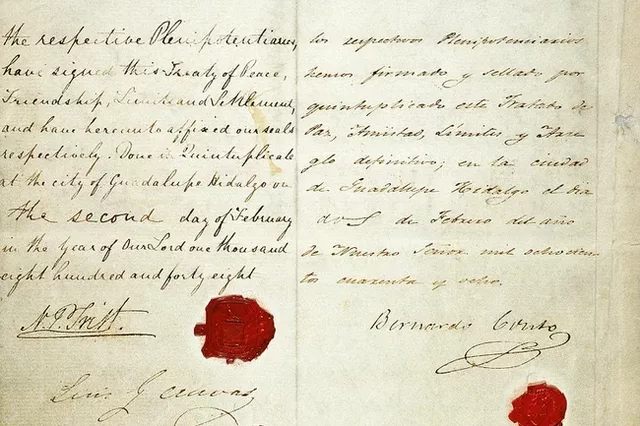 the respective Plenipotentiaries,
have signed this Treaty of Peace,
Friendship, Limits and Settlement,
and have hereunto affixed our seals
respectively. Done in Quintuplicate
at the city of Guadalupe Hidalgo on
the second day of February
in the year of Our Lord one thousand
eight hundred and forty eight
N. P. Trist.
Luis G. Cuevas
los respectivos Plenipotenciarios
hemos firmado y sellado por
quintuplicado este Tratado de
Paz, Amistad, Límites y Arre
glo definitivo; en la ciudad
de Guadalupe Hidalgo el dia
dos de Febrero del año
de Nuestro Señor mil ochocien-
tos cuarenta y ocho.
Bernardo Couto